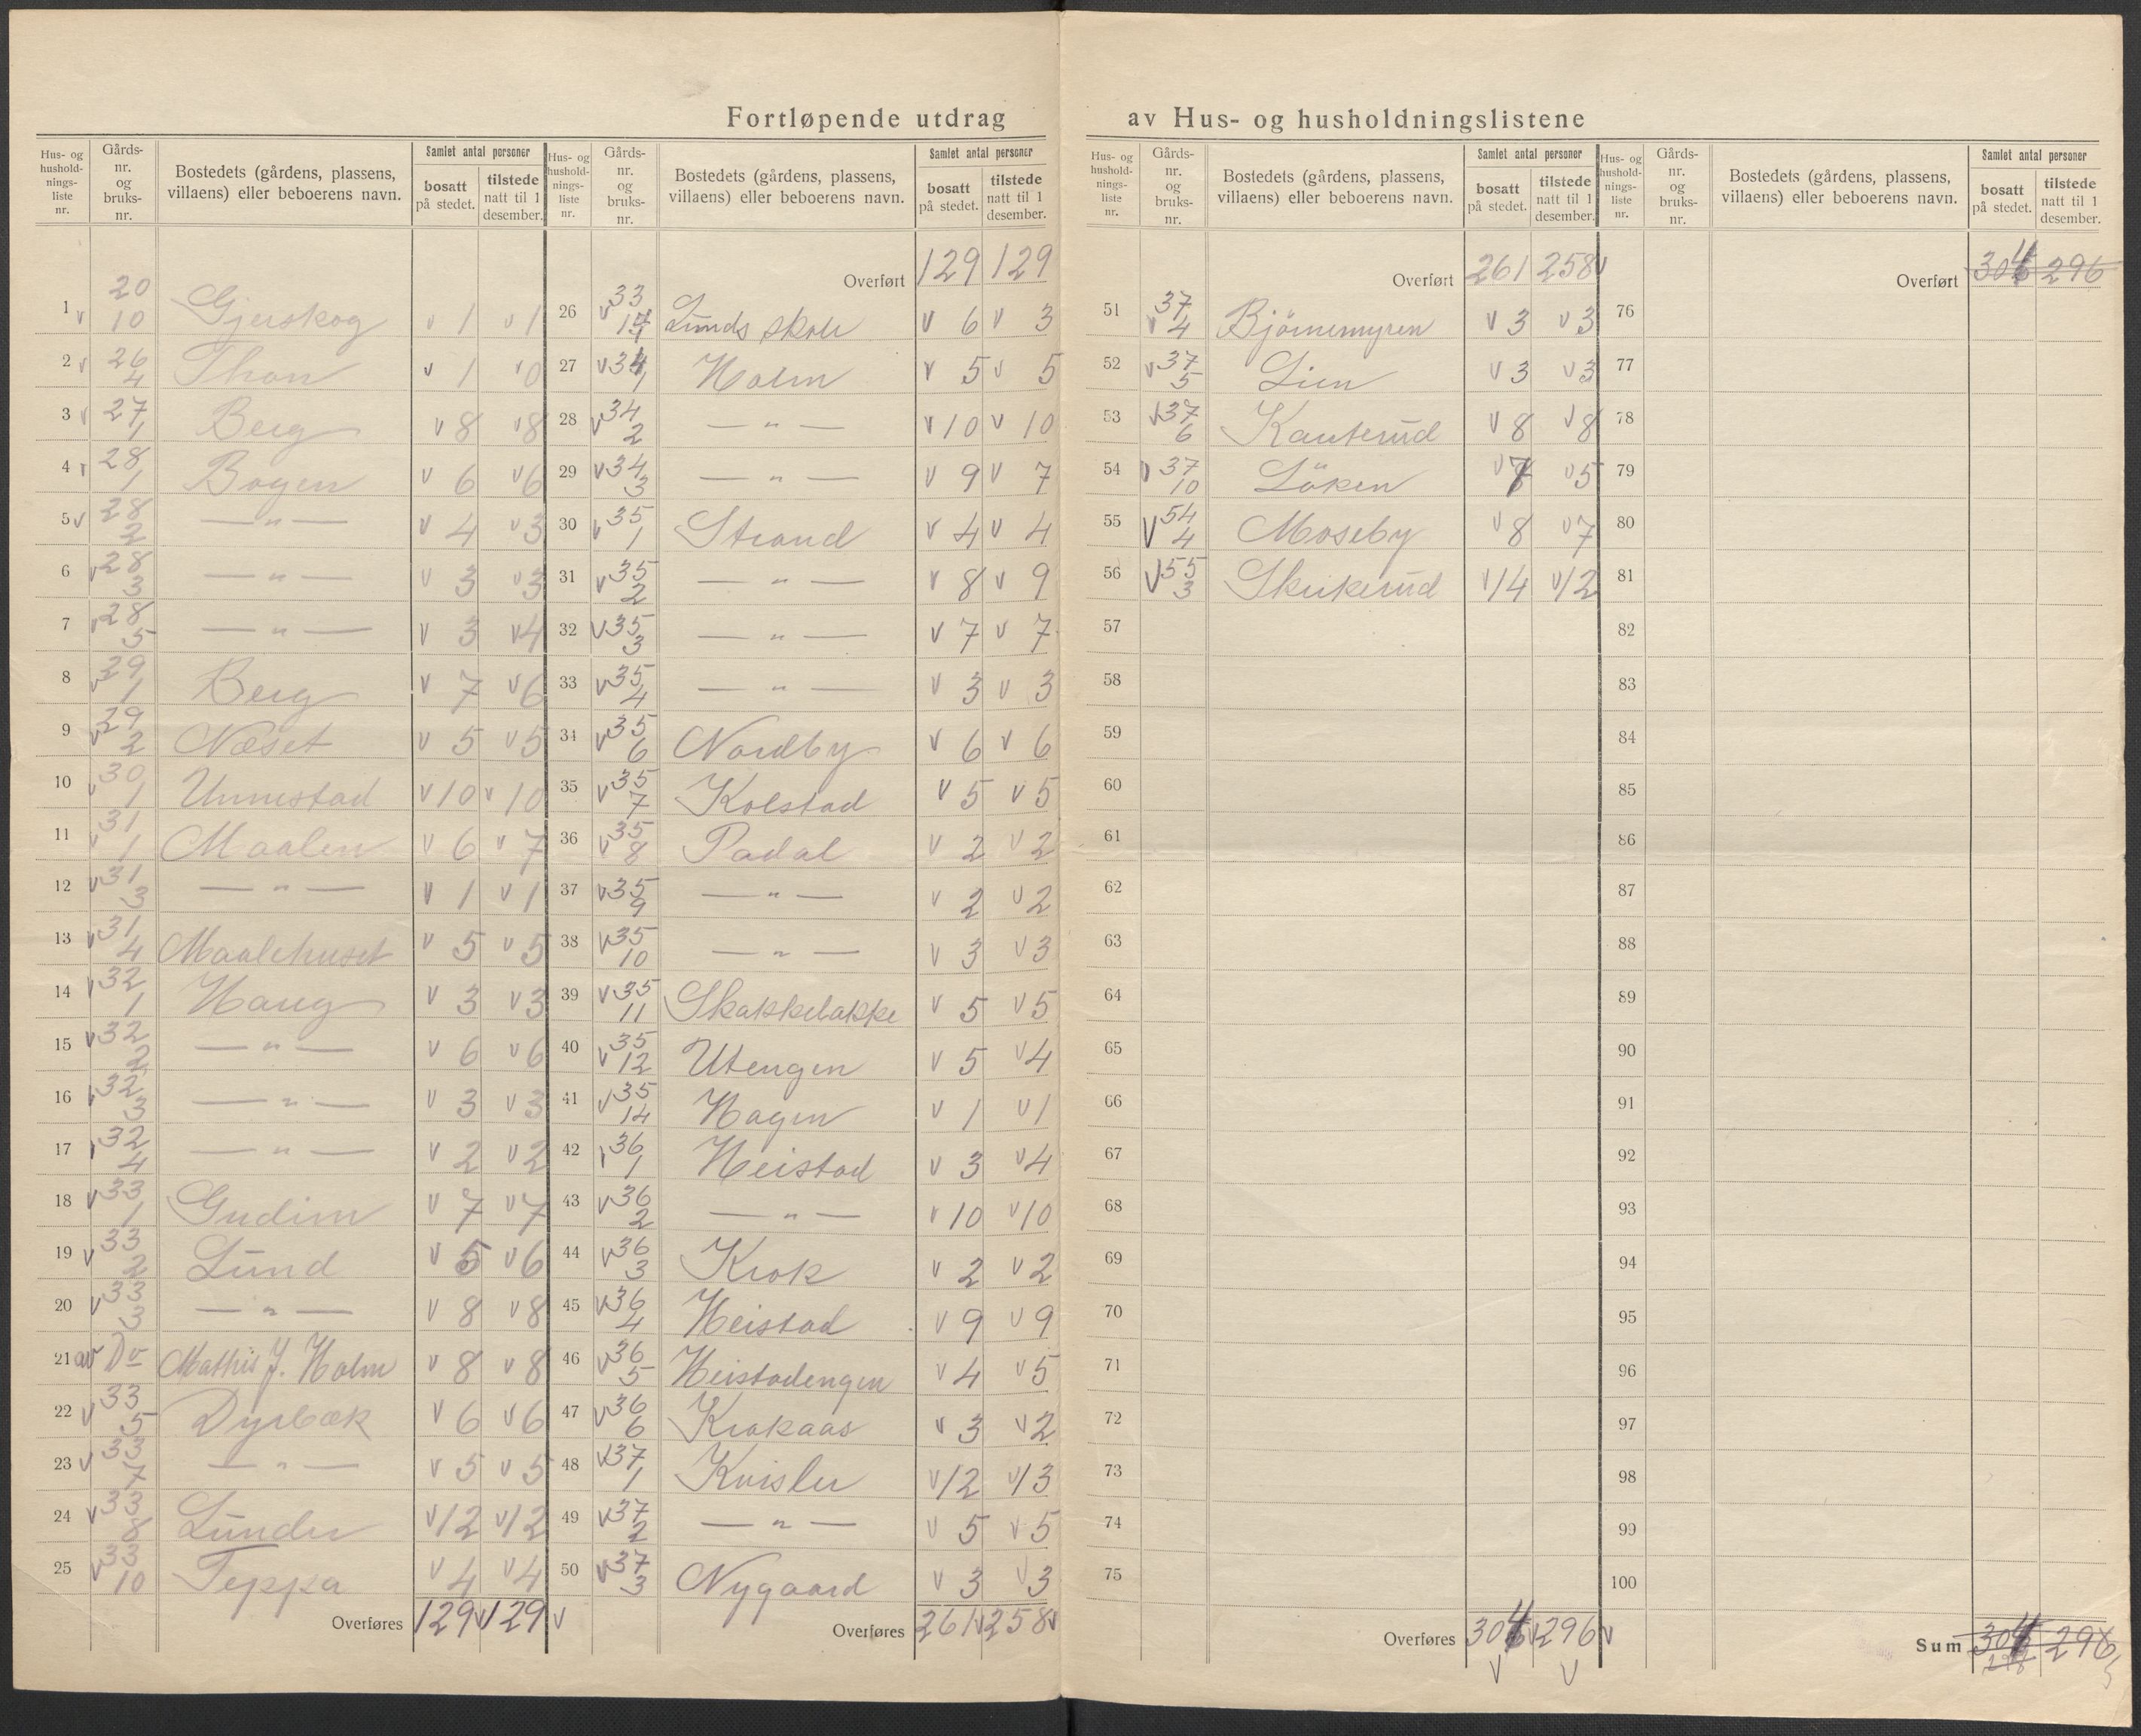 Fortløpende utdrag av Hus- og husholdningslistene
Hus- og hushold-nings-liste nr. Gårds-nr. og bruks-nr. Bostedets (gårdens, plassens, villaens) eller beboerens navn. Samlet antal personer bosatt på stedet. tilstede natt til 1 desember.
1 v 20 10 Gjerskog v 1 v 1
2 v 26 4 Thon v 1 v 0
3 v 27 1 Berg v 8 v 8
4 v 28 1 Bogen v 6 v 6
5 v 28 2 — " — v 4 v 3
6 v 28 3 — " — v 3 v 3
7 v 28 5 — " — v 3 v 4
8 v 29 1 Berg v 7 v 6
9 v 29 2 Næset v 5 v 5
10 v 30 1 Unnestad v 10 v 10
11 v 31 1 Maalen v 6 v 7
12 v 31 3 — " — v 1 v 1
13 v 31 4 Maalehuset v 5 v 5
14 v 32 1 Haug v 3 v 3
15 v 32 2 — " — v 6 v 6
16 v 32 3 — " — v 3 v 3
17 v 32 4 — " — v 2 v 2
18 v 33 1 Gudim v 7 v 7
19 v 33 2 Lund v 5 v 6
20 v 33 3 — " — v 8 v 8
21 av Do Mathis J. Holm v 8 v 8
22 v 33 5 Dyrbæk v 6 v 6
23 v 33 7 — " — v 5 v 5
24 v 33 8 Lunder v 12 v 12
25 v 33 10 Teppa v 4 v 4
Overføres 129 v 129 v
Hus- og hushold-nings-liste nr. Gårds-nr. og bruks-nr. Bostedets (gårdens, plassens, villaens) eller beboerens navn. Samlet antal personer bosatt på stedet. tilstede natt til 1 desember.
Overført 129 129
26 v 33 Lunds skole v 6 v 3
27 v 34 1 Holm v 5 v 5
28 v 34 2 — " — v 10 v 10
29 v 34 3 — " — v 9 v 7
30 v 35 1 Strand v 4 v 4
31 v 35 2 — " — v 8 v 9
32 v 35 3 — " — v 7 v 7
33 v 35 4 — " — v 3 v 3
34 v 35 6 Nordby v 6 v 6
35 v 35 7 Kolstad v 5 v 5
36 v 35 8 Padal v 2 v 2
37 v 35 9 — " — v 2 v 2
38 v 35 10 — " — v 3 v 3
39 v 35 11 Skakkebakke v 5 v 5
40 v 35 12 Utengen v 5 v 4
41 v 35 14 Hagen v 1 v 1
42 v 36 1 Heistad v 3 v 4
43 v 36 2 — " — v 10 v 10
44 v 36 3 Krok v 2 v 2
45 v 36 4 Heistad v 9 v 9
46 v 36 5 Heistadengen v 4 v 5
47 v 36 6 Krokaas v 3 v 2
48 v 37 1 Kvisler v 12 v 13
49 v 37 2 — " — v 5 v 5
50 v 37 3 Nygaard v 3 v 3
Overføres 261 v 258 v
Hus- og hushold-nings-liste nr. Gårds-nr. og bruks-nr. Bostedets (gårdens, plassens, villaens) eller beboerens navn. Samlet antal personer bosatt på stedet. tilstede natt til 1 desember.
Overført 261 258 v
51 v 37 4 Björnemyren v 3 v 3
52 v 37 5 Lien v 3 v 3
53 v 37 6 Kauterud v 8 v 8
54 v 37 10 Löken v 7 v 5
55 v 54 4 Moseby v 8 v 7
56 v 55 3 Skikerud v 14 v 12
57
58
59
60
61
62
63
64
65
66
67
68
69
70
71
72
73
74
75
Overføres 304 v 296 v
v v
Hus- og hushold-nings-liste nr. Gårds-nr. og bruks-nr. Bostedets (gårdens, plassens, villaens) eller beboerens navn. Samlet antal personer bosatt på stedet. tilstede natt til 1 desember.
Overført 304 296
76
77
78
79
80
81
82
83
84
85
86
87
88
89
90
91
92
93
94
95
96
97
98
99
100
Sum 304 296